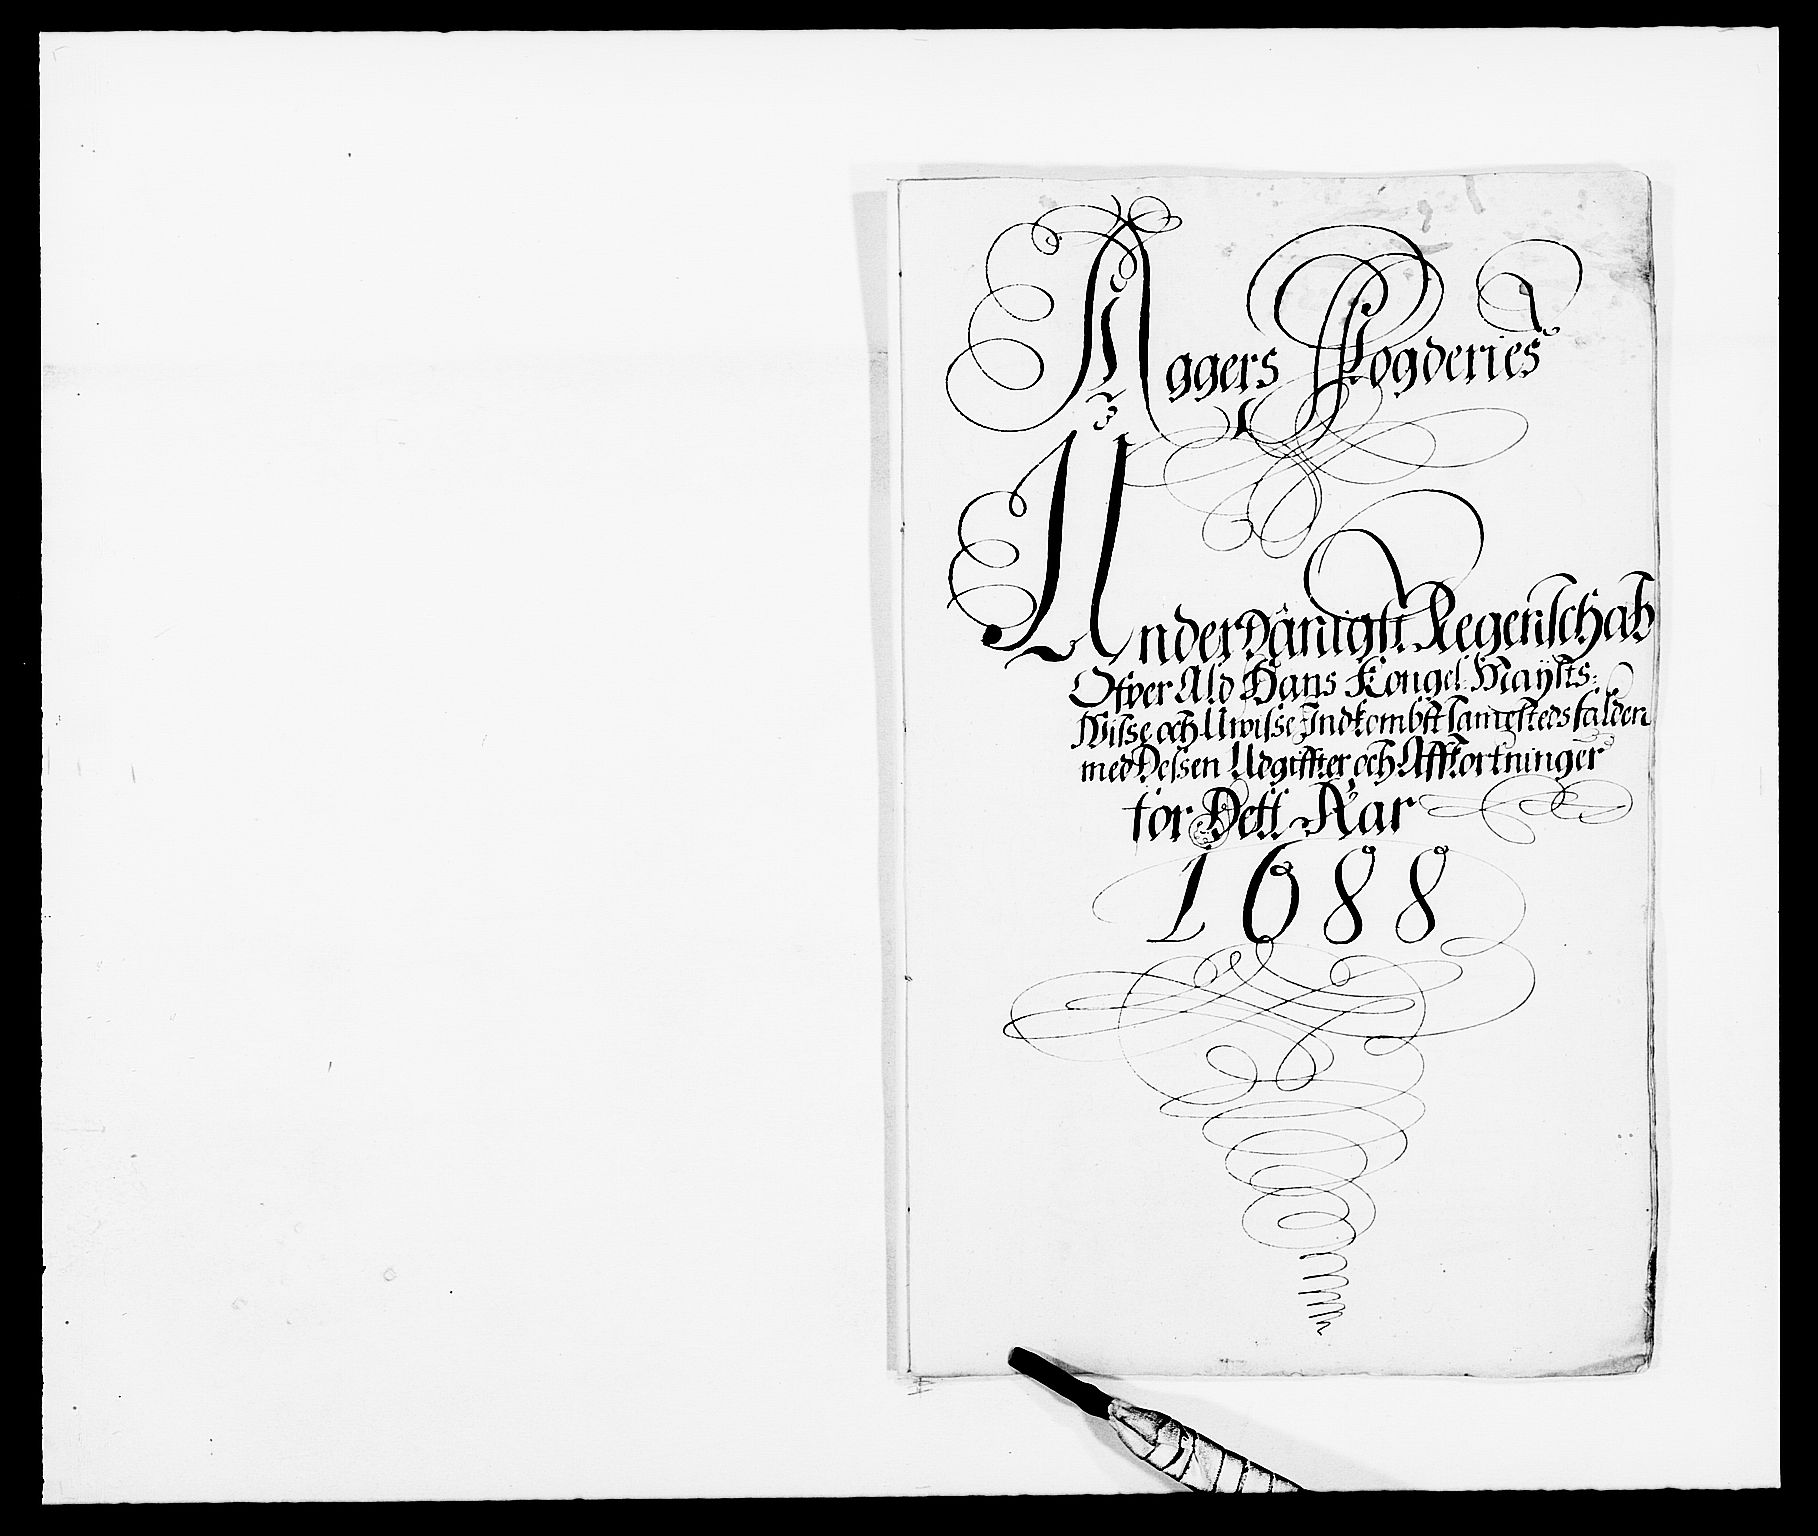 Aggers Fogderies
UnderDanigst Regenschab
Ofver Ald Hans Kongel: Mayhts:
Wisse och Uwisse Indkombst samesteds falden
med Dessen Udgiffter och Affkortninger
for Dett Aar
1688